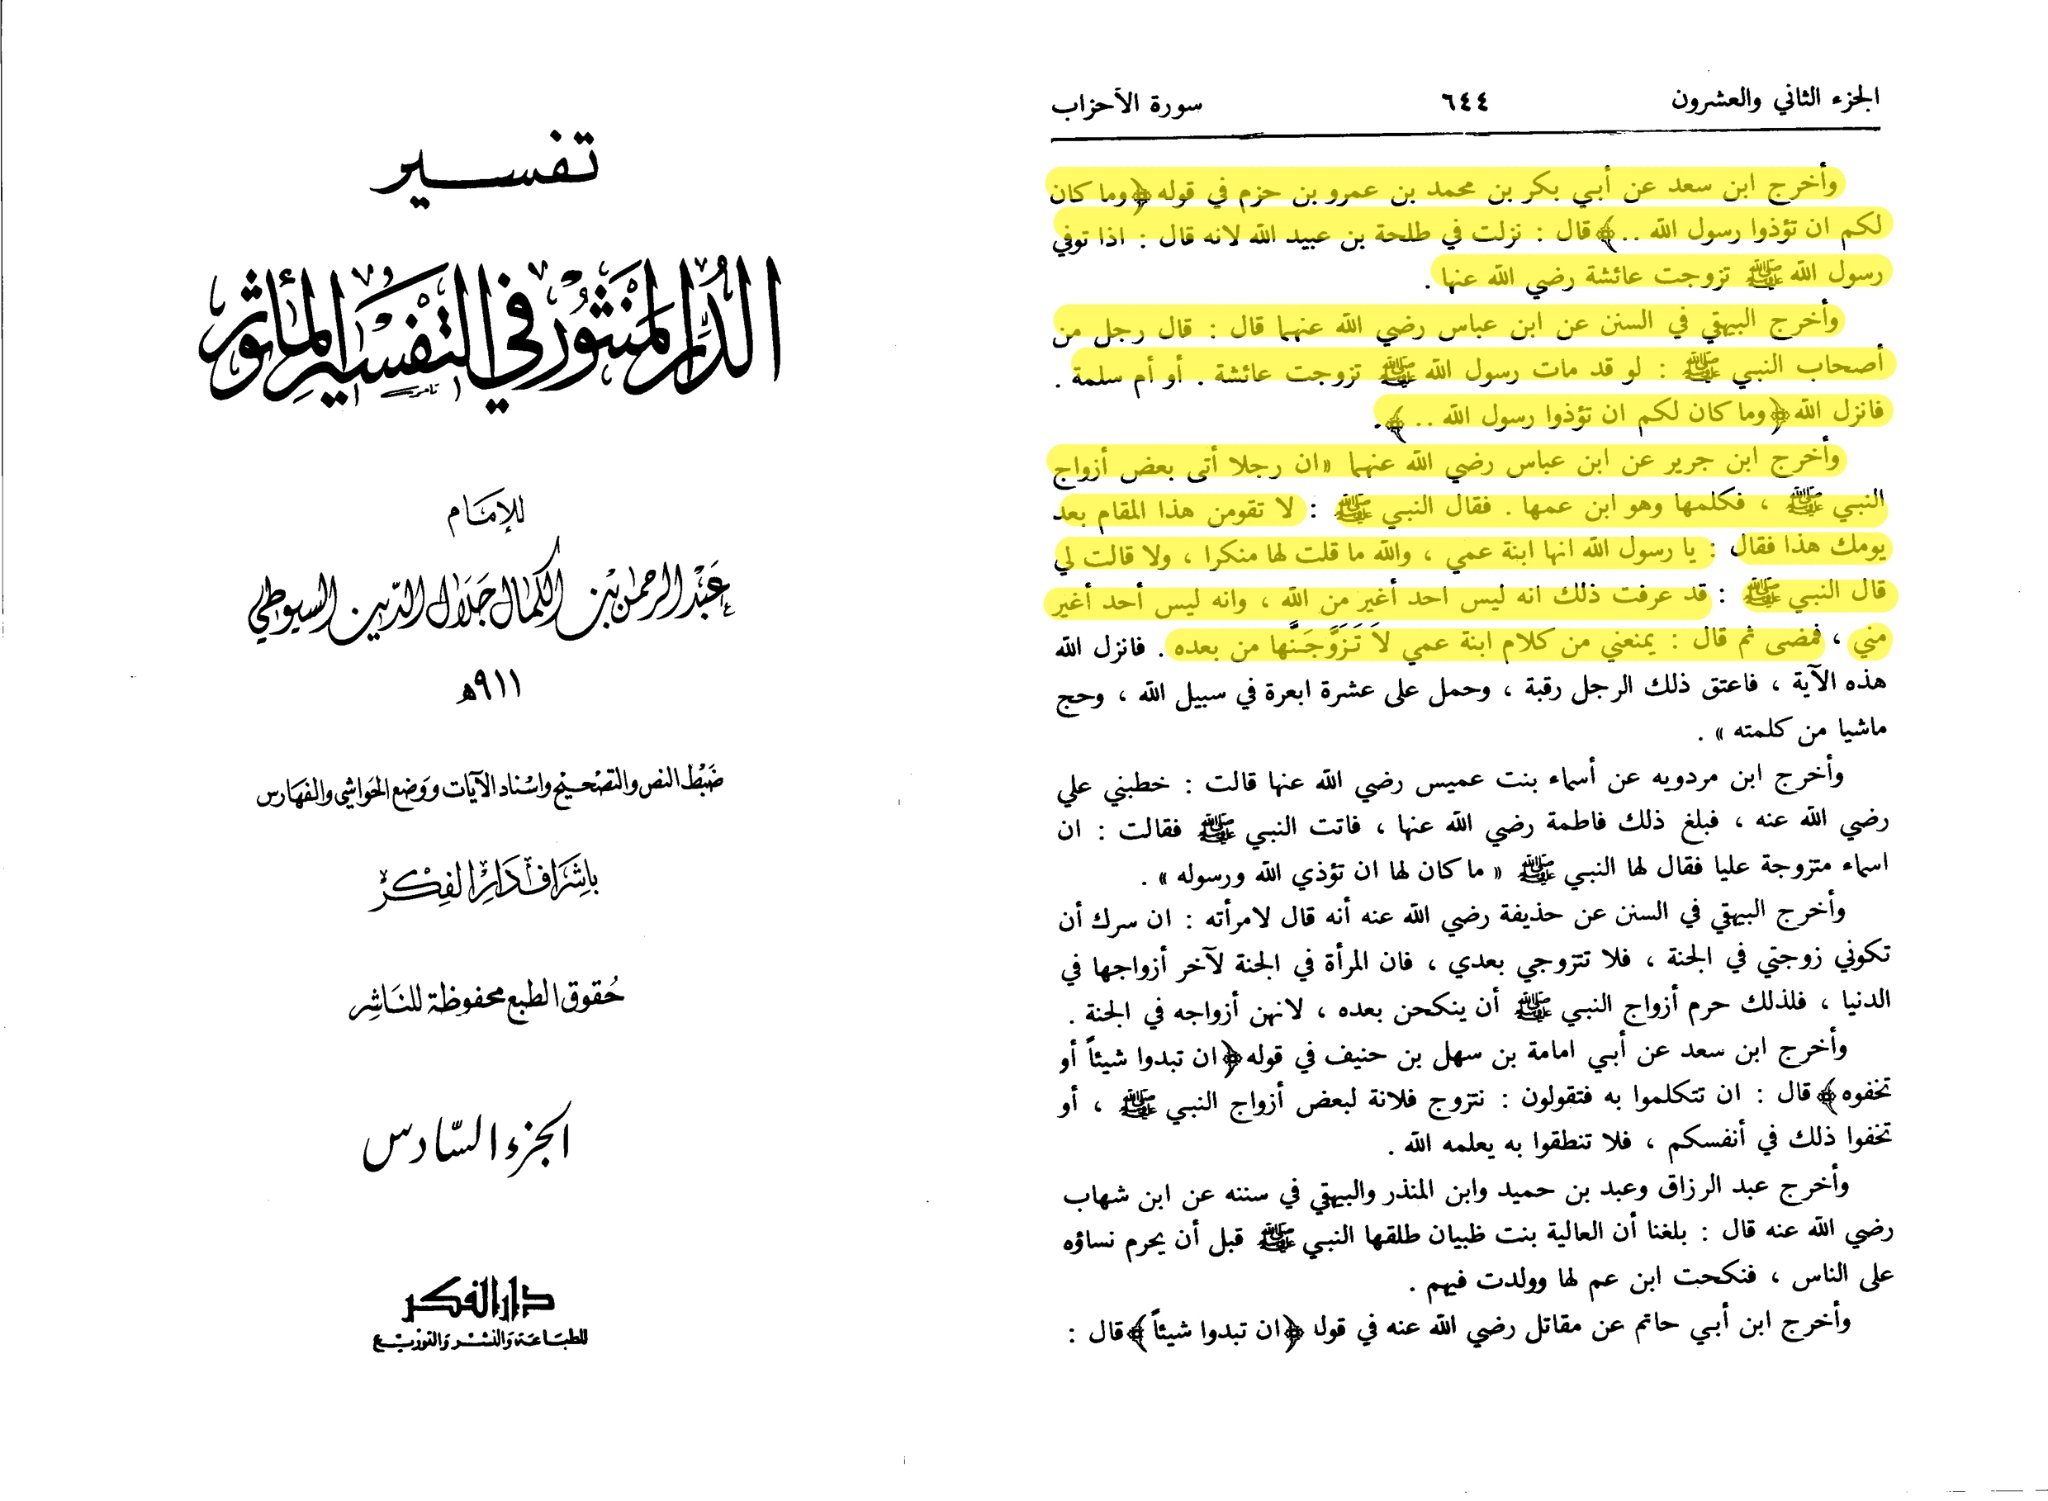 تفسير
الدر المنثور في التفسير المأثور
للإمام
عبد الرحمن بن الكمال جلال الدين السيوطي
٩١١ هـ
ضبط النص والتصحيح واسناد الآيات ووضع الحواشي والفهارس
بإشراف دار الفكر
حقوق الطبع محفوظة للناشر
الجزء السادس
دار الفكر
للطباعة والنشر والتوزيع
الجزء الثاني والعشرون ٦٤٤ سورة الأحزاب
وأخرج ابن سعد عن أبي بكر بن محمد بن عمرو بن حزم في قوله ﴿وما كان
لكم ان تؤذوا رسول الله ..﴾ قال : نزلت في طلحة بن عبيد الله لانه قال : اذا توفي
رسول الله ﷺ تزوجت عائشة رضي الله عنها .
وأخرج البيهقي في السنن عن ابن عباس رضي الله عنهما قال : قال رجل من
أصحاب النبي ﷺ : لو قد مات رسول الله ﷺ تزوجت عائشة . أو أم سلمة .
فانزل الله ﴿وما كان لكم ان تؤذوا رسول الله ..﴾.
وأخرج ابن جرير عن ابن عباس رضي الله عنهما «ان رجلا أتى بعض أزواج
النبي ﷺ ، فكلمها وهو ابن عمها . فقال النبي ﷺ : لا تقومن هذا المقام بعد
يومك هذا فقال : يا رسول الله انها ابنة عمي ، والله ما قلت لها منكرا ، ولا قالت لي
قال النبي ﷺ : قد عرفت ذلك انه ليس احد أغير من الله ، وانه ليس أحد أغير
مني ، فمضى ثم قال : يمنعني من كلام ابنة عمي لاَ تَزَوَّجَنَّها من بعده . فانزل الله
هذه الآية ، فاعتق ذلك الرجل رقبة ، وحمل على عشرة ابعرة في سبيل الله ، وحج
ماشيا من كلمته » .
وأخرج ابن مردويه عن أسماء بنت عميس رضي الله عنها قالت : خطبني علي
رضي الله عنه ، فبلغ ذلك فاطمة رضي الله عنها ، فاتت النبي ﷺ فقالت : ان
اسماء متزوجة عليا فقال لها النبي ﷺ « ما كان لها ان تؤذي الله ورسوله » .
وأخرج البيهقي في السنن عن حذيفة رضي الله عنه أنه قال لامرأته : ان سرك أن
تكوني زوجتي في الجنة ، فلا تتزوجي بعدي ، فان المرأة في الجنة لآخر أزواجها في
الدنيا ، فلذلك حرم أزواج النبي ﷺ أن ينكحن بعده ، لانهن أزواجه في الجنة .
وأخرج ابن سعد عن أبي امامة بن سهل بن حنيف في قوله ﴿ان تبدوا شيئاً أو
تخفوه﴾ قال : ان تتكلموا به فتقولون : نتزوج فلانة لبعض أزواج النبي ﷺ ، أو
تخفوا ذلك في أنفسكم ، فلا تنطقوا به يعلمه الله .
وأخرج عبد الرزاق وعبد بن حميد وابن المنذر والبيهقي في سننه عن ابن شهاب
رضي الله عنه قال : بلغنا أن العالية بنت ظبيان طلقها النبي ﷺ قبل أن يحرم نساؤه
على الناس ، فنكحت ابن عم لها وولدت فيهم .
وأخرج ابن أبي حاتم عن مقاتل رضي الله عنه في قوله ﴿ان تبدوا شيئاً﴾ قال :